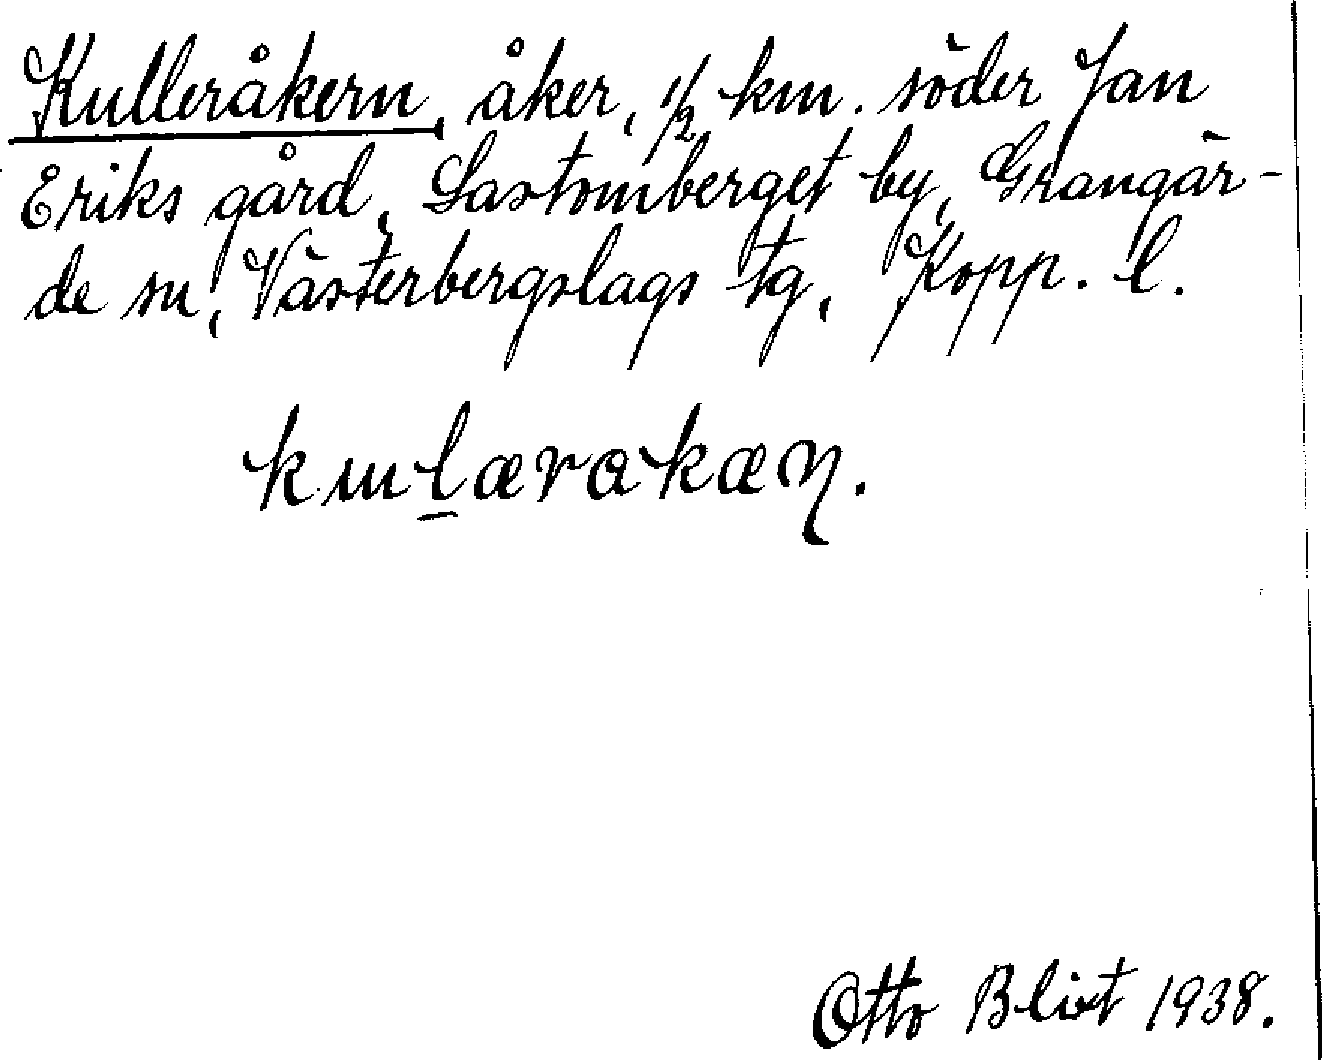 Kulleråkern, åker, 1/2 km. söder Jan
Eriks gård, Saxtomberget by, Grangär-
de sn, Västerbergslags tg, Kopp. l.
Otto Blixt 1938.